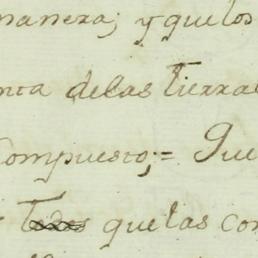 manera; y que los
nta delas Tierras
Compuesto; = Que
que las con